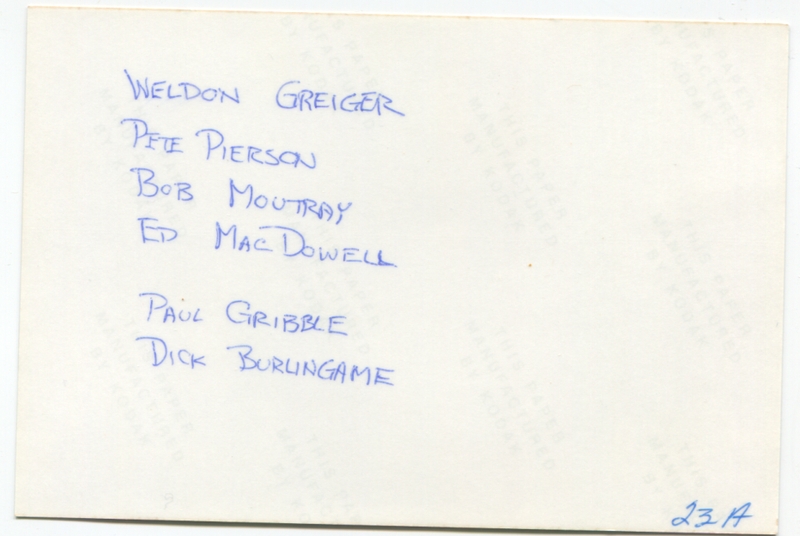 WELDON GREIGER
PETE PIERSON
BOB MOUTRAY
ED MACDOWELL
PAUL GRIBBLE
DICK BURLINGAME
23A
THIS PAPER
MANUFACTURED
BY KODAK